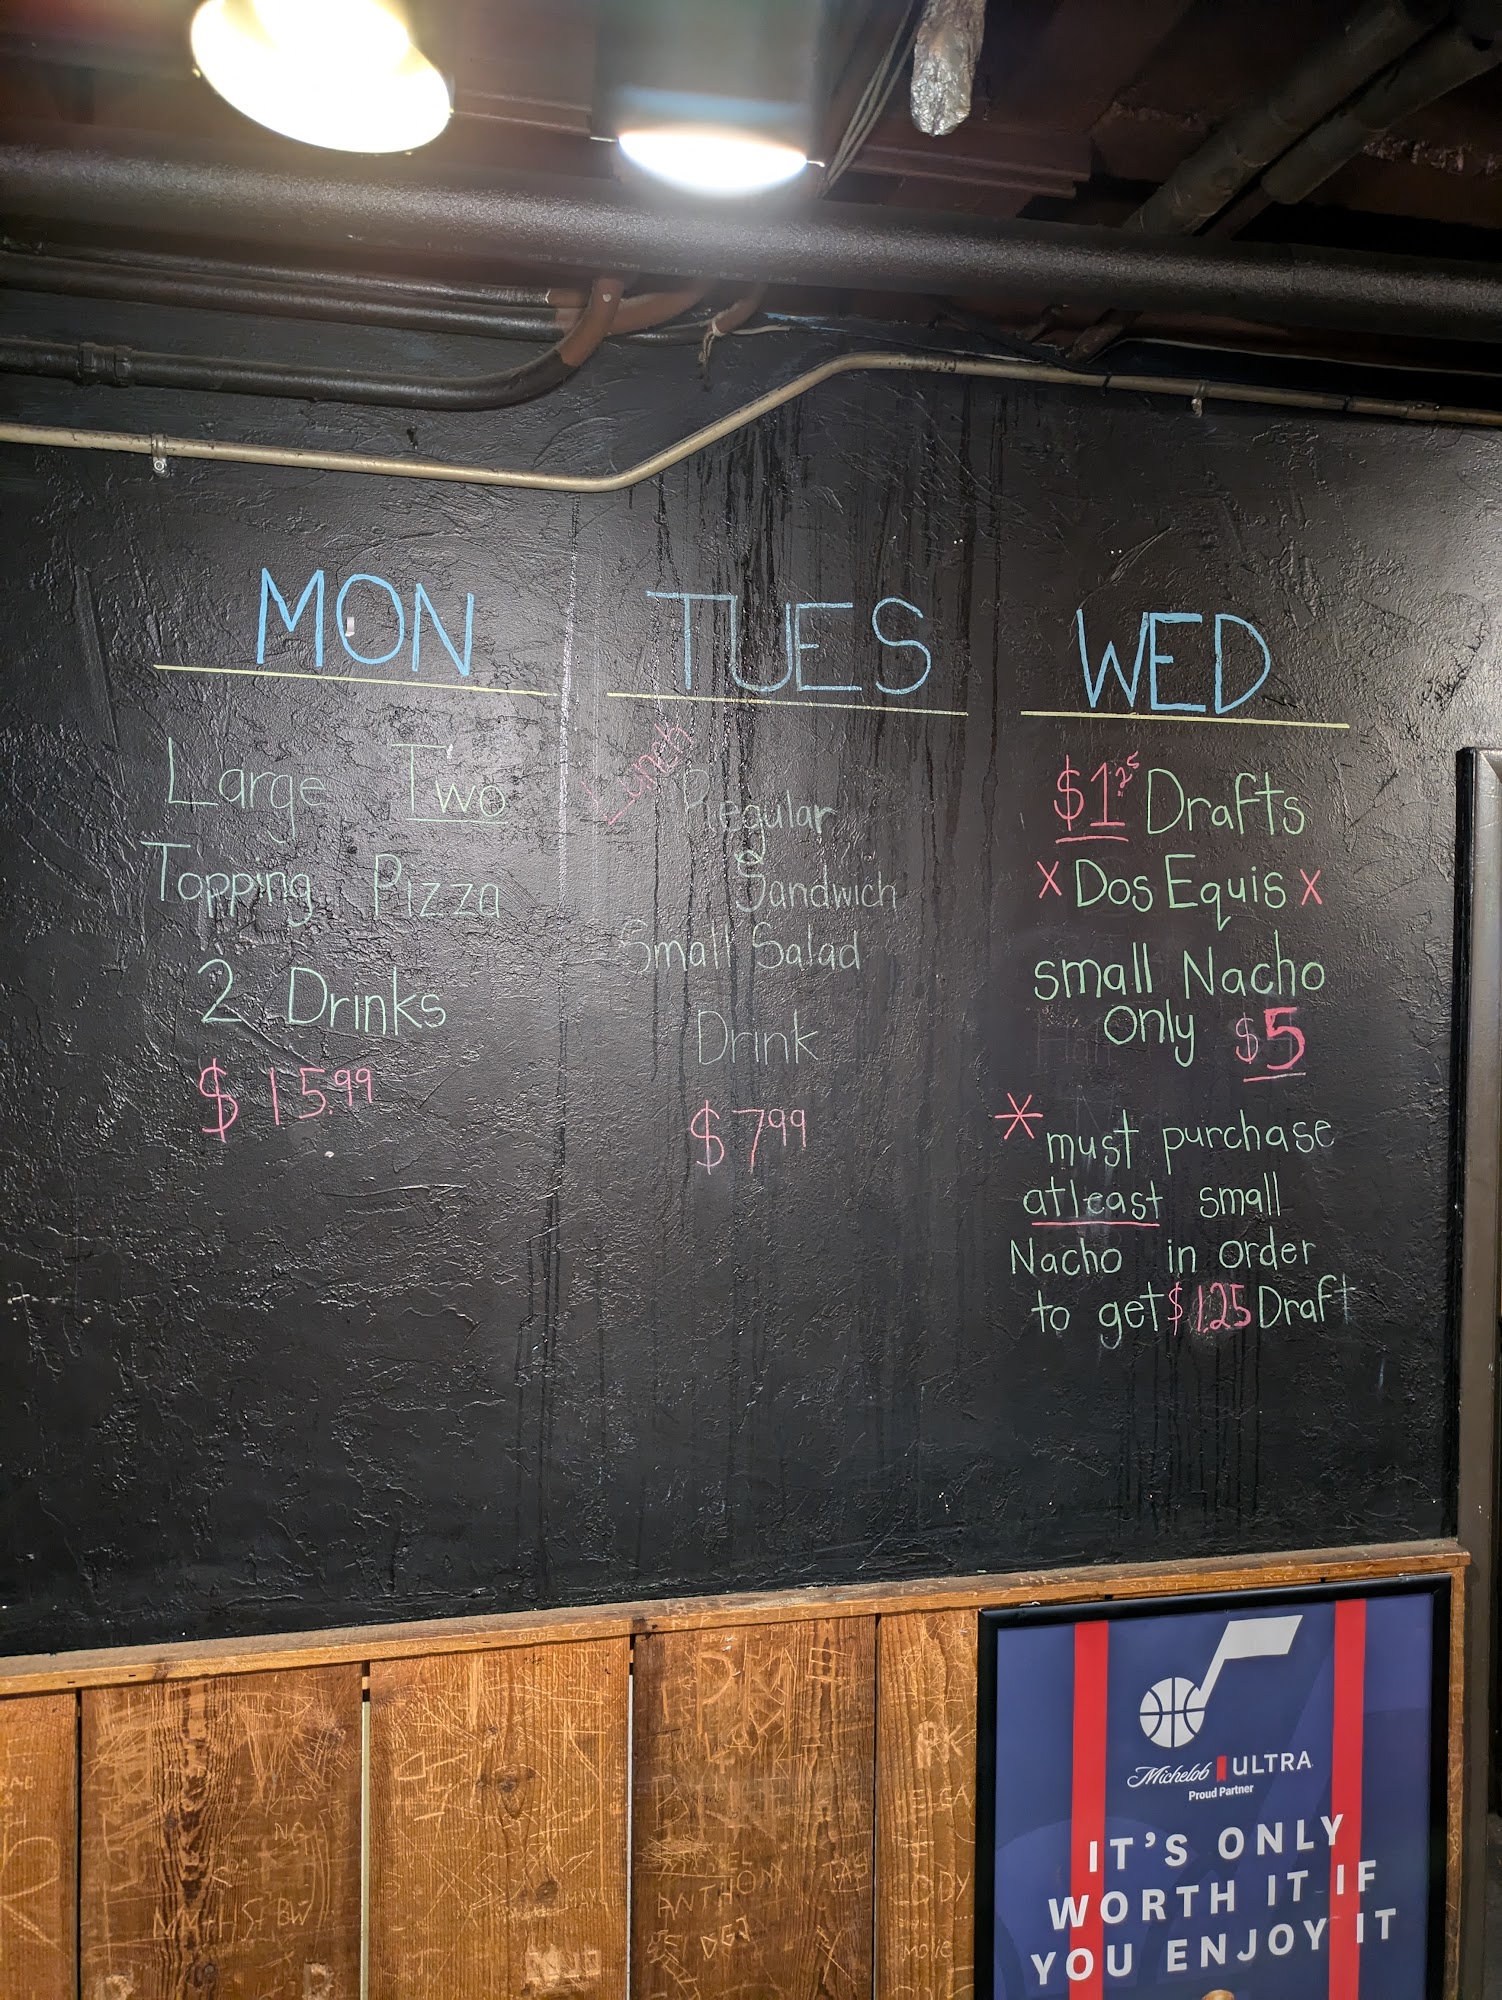 MON
Large Two
Topping Pizza
2 Drinks
$15.99
TUES
Lunch
Regular
Sandwich
Small Salad
Drink
$7.99
WED
$1.25 Drafts
X Dos Equis X
small Nacho
Only $5
* must purchase
atleast small
Nacho in order
to get $1.25 Draft
Michelob ULTRA
Proud Partner
IT'S ONLY
WORTH IT IF
YOU ENJOY IT
ANTHONY